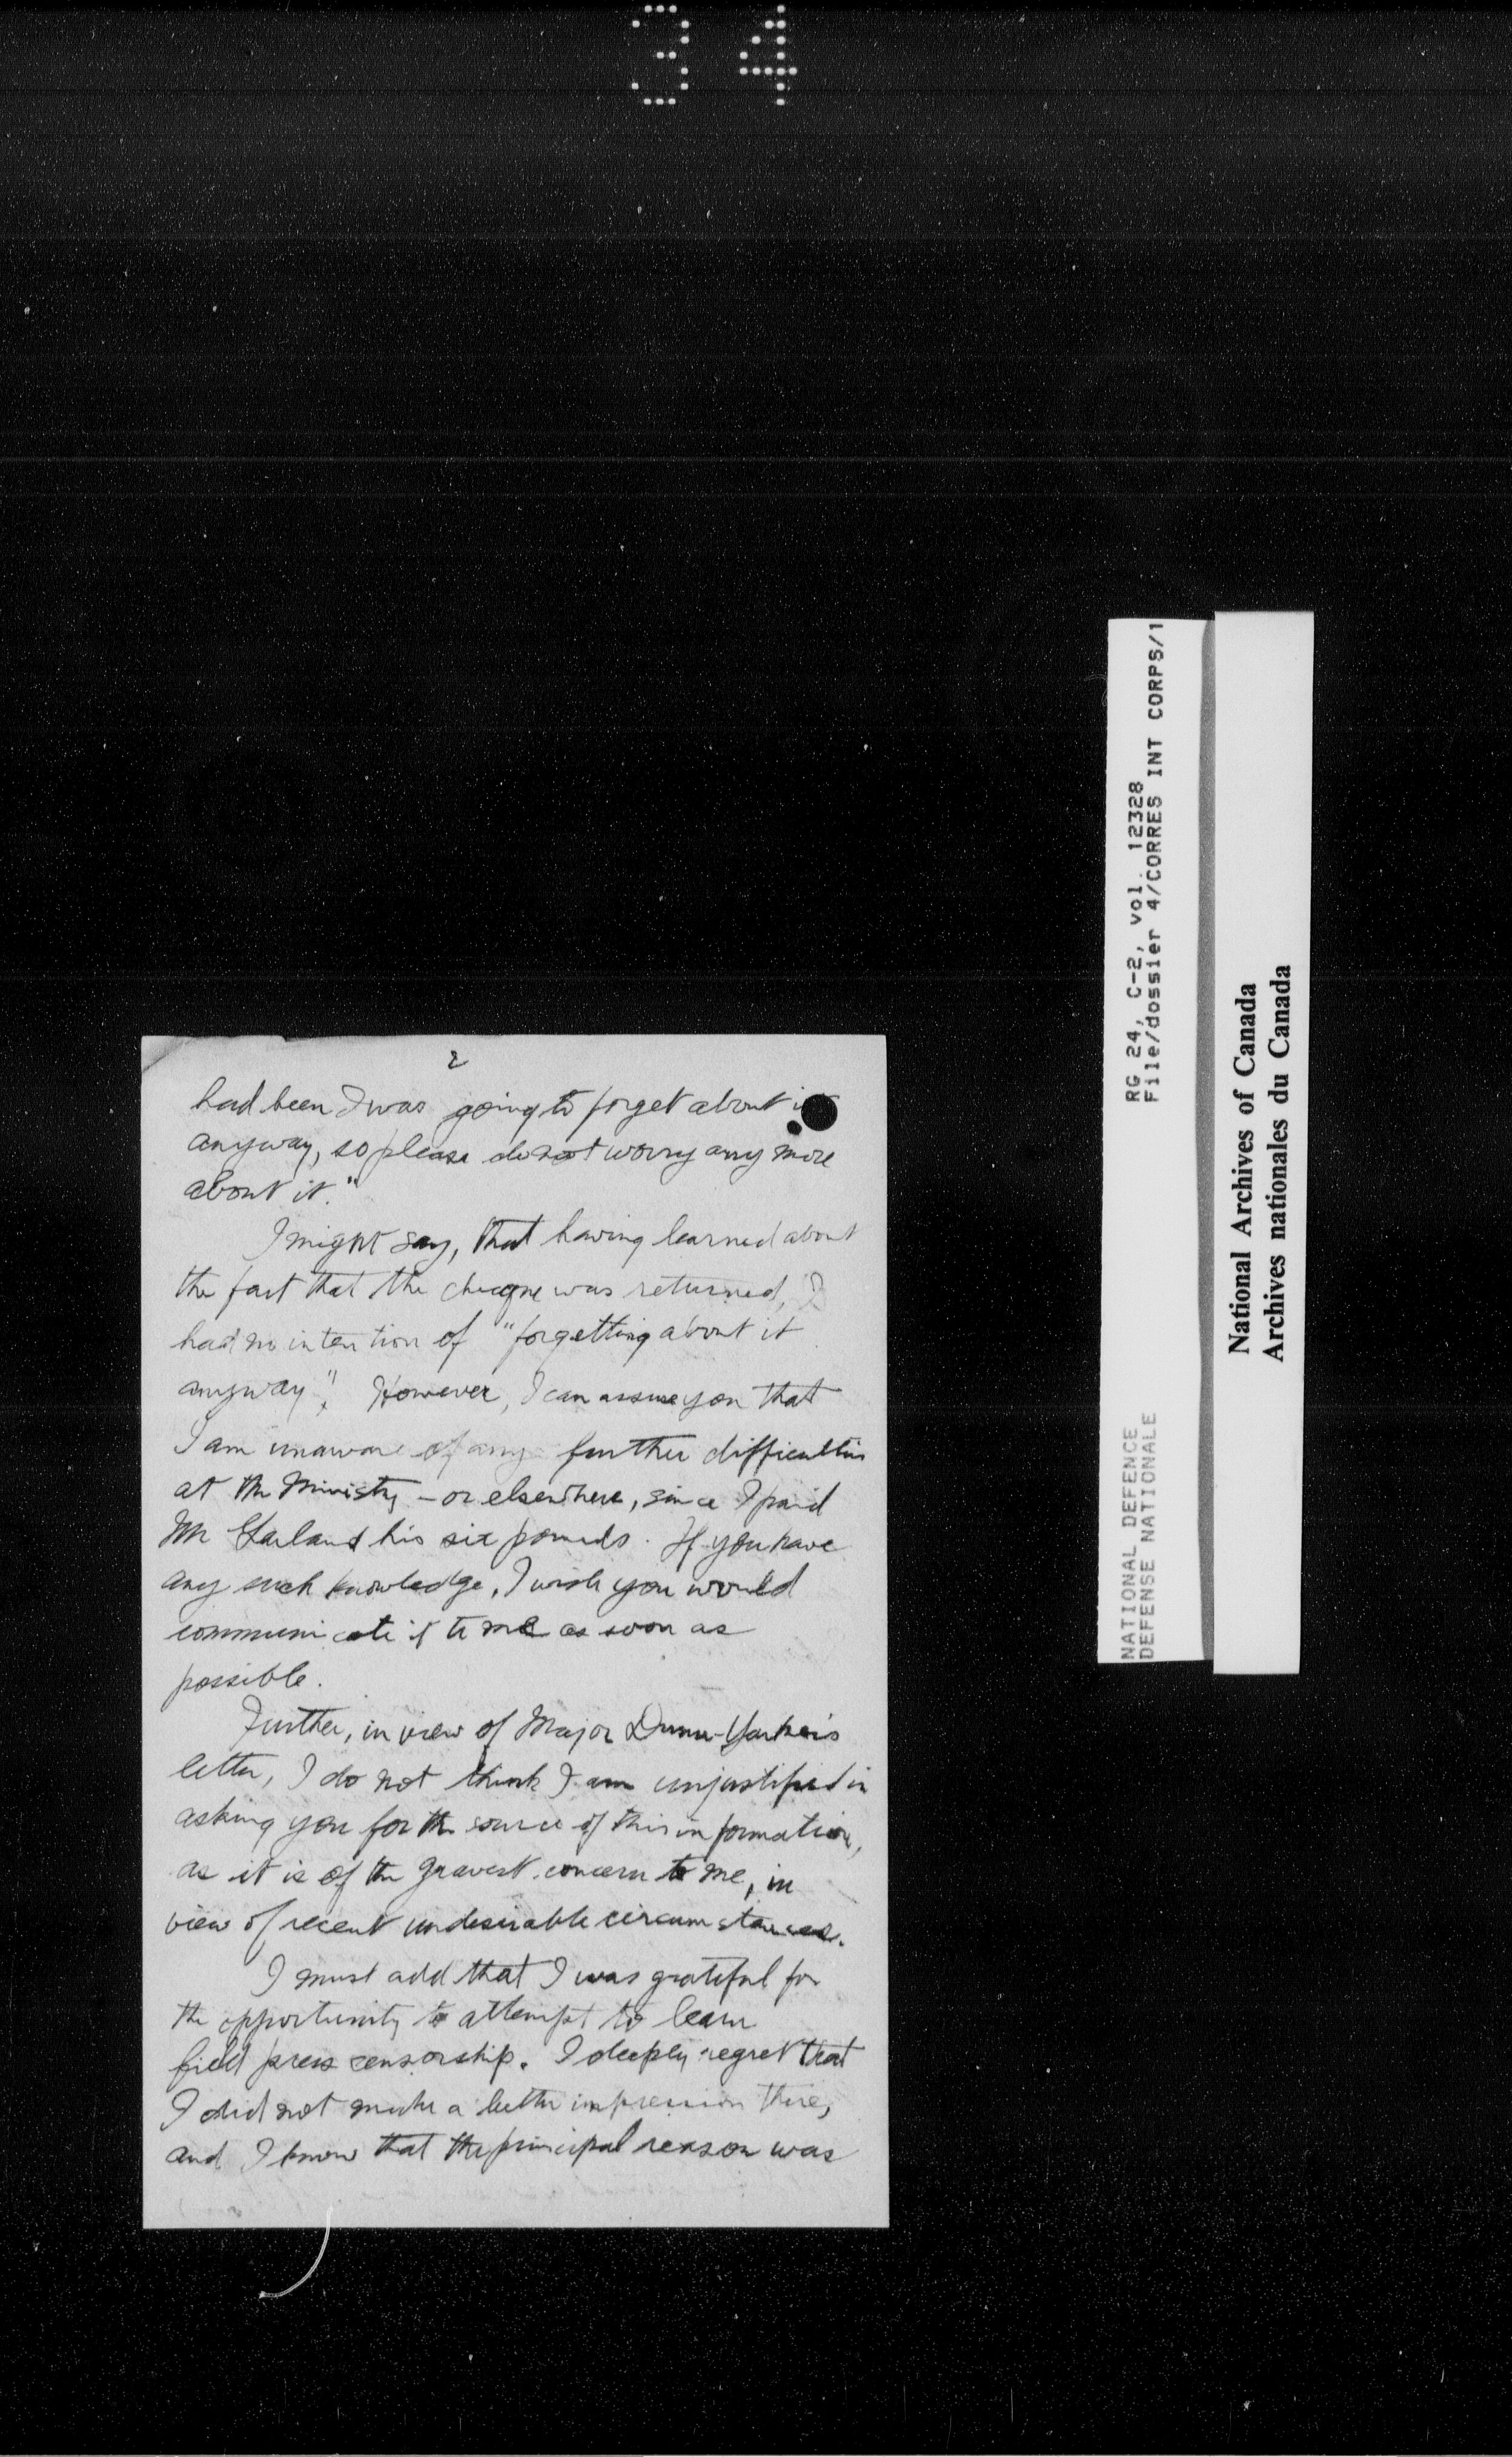 34
2
had been I was going to forget about it
anyway, so please do not worry any more
about it."
I might say, that having learned about
the fact that the cheque was returned, I
had no intention of "forgetting about it
anyway". However, I can assure you that
I am unaware of any further difficulties
at the Ministry - or elsewhere, since I paid
Mr Garland his six pounds. If you have
any such knowledge, I wish you would
communicate it to me as soon as
possible.
Further, in view of Major Dunn-Yarker's
letter, I do not think I am unjustified in
asking you for the source of this information,
as it is of the gravest concern to me, in
view of recent undesirable circumstances.
I must add that I was grateful for
the opportunity to attempt to learn
field press censorship. I deeply regret that
I did not make a better impression there,
and I know that the principal reason was
RG 24, C-2, vol. 12328
File/dossier 4/CORRES INT CORPS/1
NATIONAL DEFENCE
DEFENSE NATIONALE
National Archives of Canada
Archives nationales du Canada